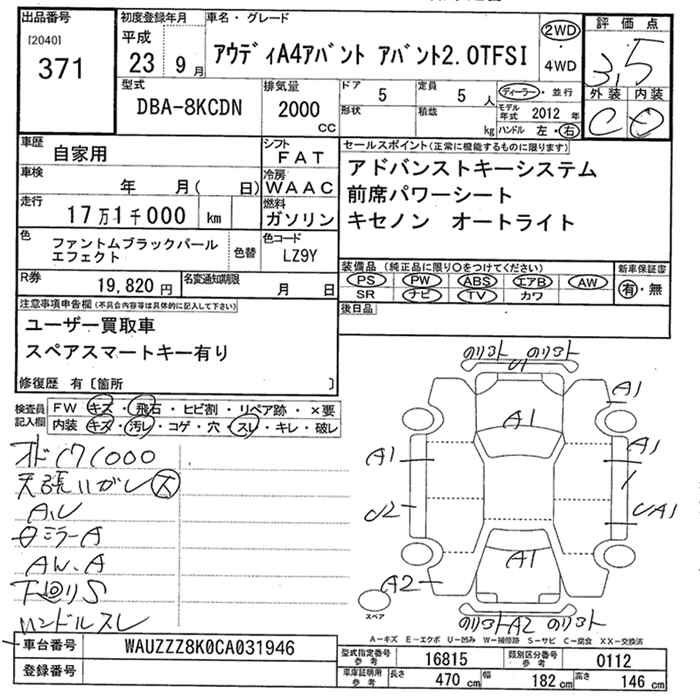 出品番号
[2040]
371
初度登録年月
平成
23年 9月
車名・グレード
アウディA4アバント アバント2.0TFSI
2WD
・
4WD
評価点
3.5
外装 内装
C C
型式
DBA-8KCDN
排気量
2000
CC
ドア
5
定員
5 人
形状
積載
kg
ディーラー・並行
モデル年式 2012 年
ハンドル 左・右
車歴
自家用
シフト
FAT
車検
年 月( 日)
冷房
WAAC
走行
17万1千000 km
燃料
ガソリン
色
ファントムブラックパール
エフェクト
色替
色コード
LZ9Y
R券
19,820円
名変通知期限
月 日
セールスポイント(正常に機能するものに限ります)
アドバンストキーシステム
前席パワーシート
キセノン オートライト
装備品 (純正品に限り○をつけてください)
PS PW ABS エアB AW
SR ナビ TV カワ
新車保証書
有・無
後日品
注意事項申告欄(不具合内容等は具体的に記入して下さい)
ユーザー買取車
スペアスマートキー有り
修復歴 有〔箇所 〕
検査員
記入欄
FW キズ・飛石・ヒビ割・リペア跡・×要
内装 キズ・汚レ・コゲ・穴・スレ・キレ・破レ
天張りハガレ大
ミラーA
下廻りS
ハンドルスレ
A1
A1
A1
A1
U2
UA1
A1
A2
A2
スペア
A-キズ E-エクボ U-凹み W-補修跡 S-サビ C-腐食 XX-交換済
車台番号
WAUZZZ8K0CA031946
登録番号
型式指定番号
参考
16815
類別区分番号
参考
0112
車庫証明用
参考
長さ
470 cm
幅
182 cm
高さ
146 cm